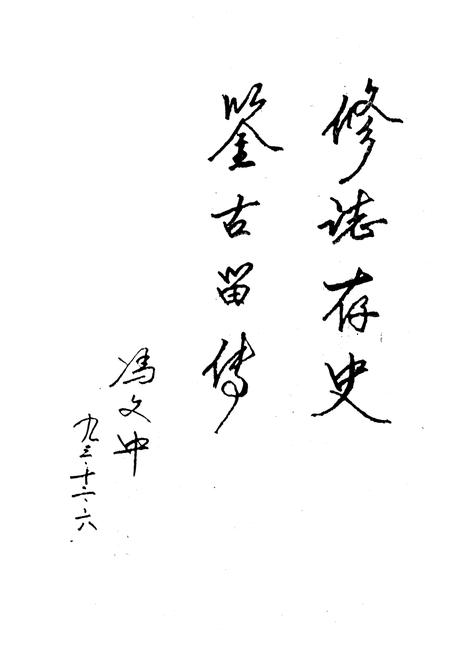 修誌存史
鉴古留传
冯文中
九三·十二·六